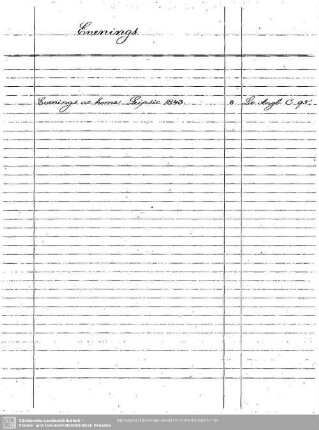 Evenings.
Evenings at home. Leipsic 1843. 8 Lit. Angl. C. 95.
Sächsische Landesbibliothek -
Staats- und Universitätsbibliothek Dresden